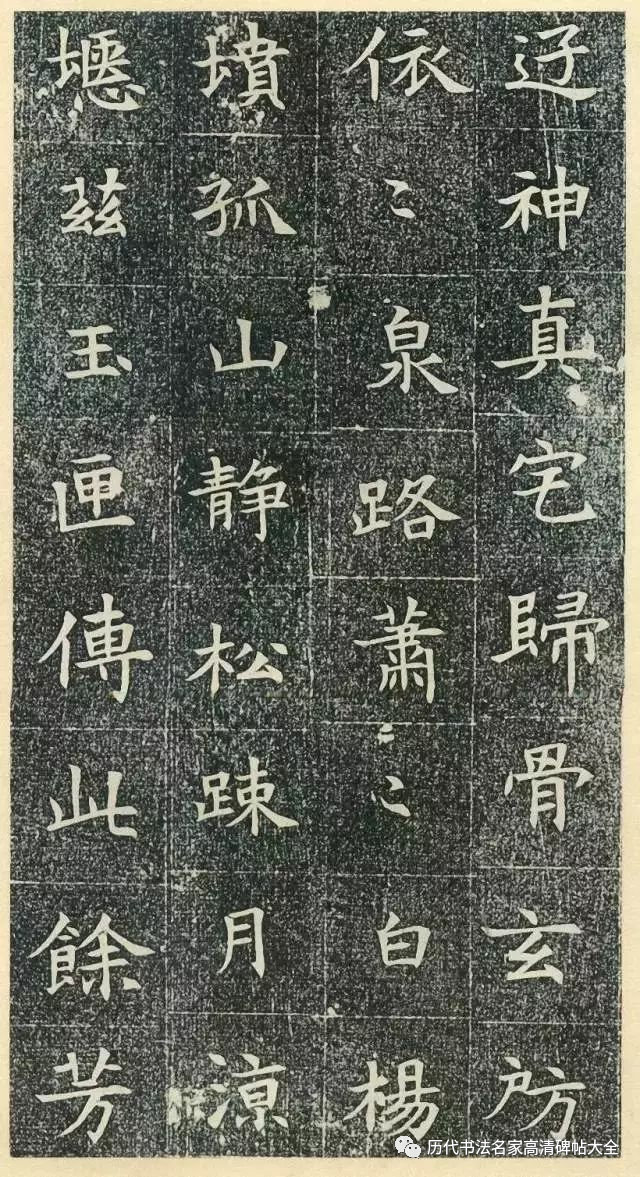 迂神真宅歸骨玄房
依〻泉路蕭〻白楊
墳孤山静松踈月涼
瘱茲玉匣傳此餘芳
历代书法名家高清碑帖大全